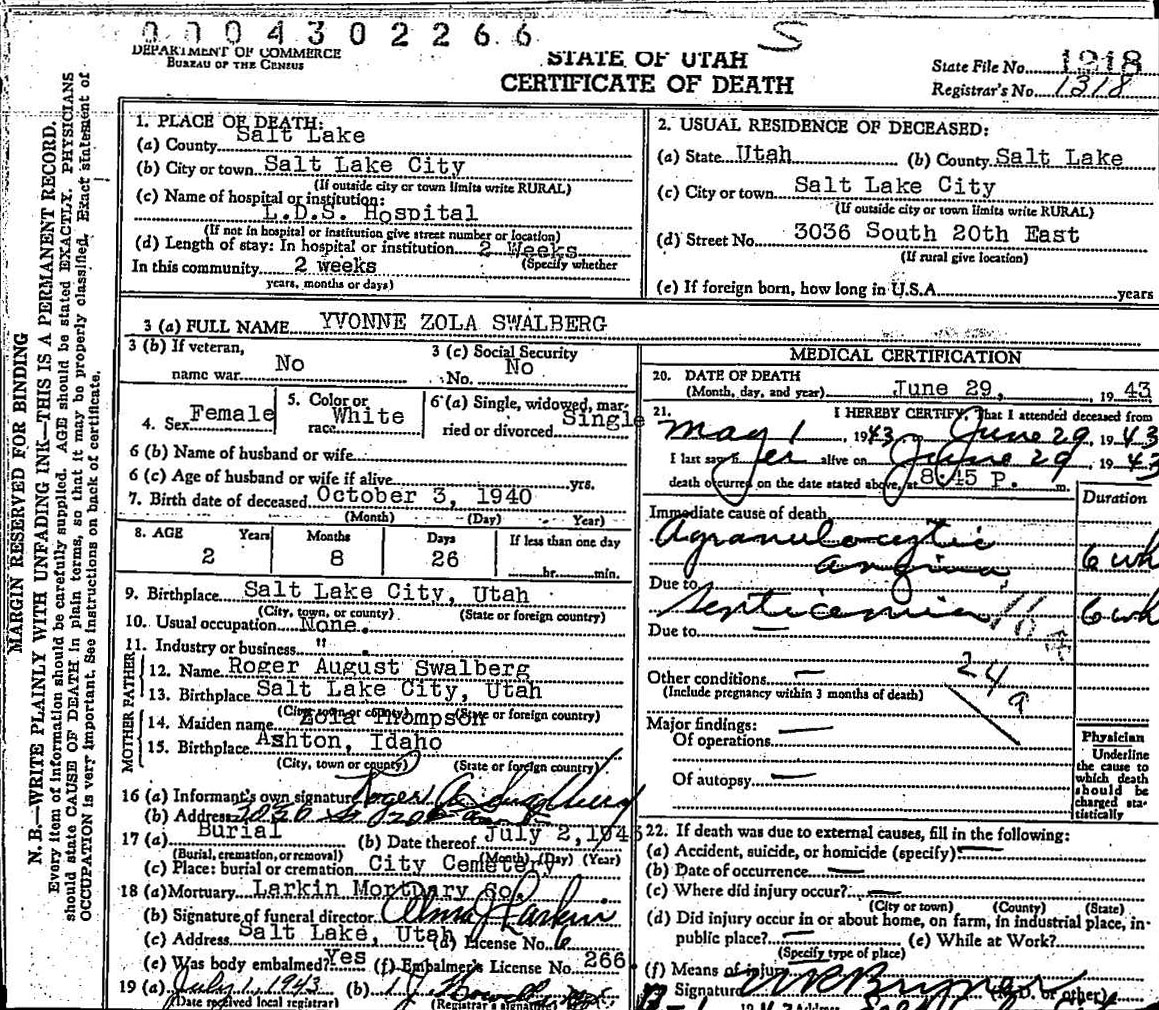 0 0 0 4 3 0 2 2 6 6 S
DEPARTMENT OF COMMERCE
BUREAU OF THE CENSUS
STATE OF UTAH
CERTIFICATE OF DEATH
State File No. 1218
Registrar's No. 1318
MARGIN RESERVED FOR BINDING
N. B.—WRITE PLAINLY WITH UNFADING INK—THIS IS A PERMANENT RECORD.
Every item of information should be carefully supplied. AGE should be stated EXACTLY. PHYSICIANS
should state CAUSE OF DEATH in plain terms, so that it may be properly classified. Exact statement of
OCCUPATION is very important. See instructions on back of certificate.
1. PLACE OF DEATH:
(a) County Salt Lake
(b) City or town Salt Lake City
(If outside city or town limits write RURAL)
(c) Name of hospital or institution:
L.D.S. Hospital
(If not in hospital or institution give street number or location)
(d) Length of stay: In hospital or institution 2 Weeks
(Specify whether
In this community 2 weeks
years, months or days)
2. USUAL RESIDENCE OF DECEASED:
(a) State Utah (b) County Salt Lake
(c) City or town Salt Lake City
(If outside city or town limits write RURAL)
(d) Street No. 3036 South 20th East
(If rural give location)
(e) If foreign born, how long in U.S.A. years
3 (a) FULL NAME YVONNE ZOLA SWALBERG
3 (b) If veteran, name war No
3 (c) Social Security No. No
4. Sex Female
5. Color or race White
6 (a) Single, widowed, married or divorced Single
6 (b) Name of husband or wife
6 (c) Age of husband or wife if alive yrs.
7. Birth date of deceased October 3, 1940
(Month) (Day) Year)
8. AGE Years Months Days If less than one day
2 8 26 hr. min.
9. Birthplace Salt Lake City, Utah
(City, town, or county) (State or foreign country)
10. Usual occupation None.
11. Industry or business " .
FATHER
12. Name Roger August Swalberg
13. Birthplace Salt Lake City, Utah
(City, town or county) (State or foreign country)
MOTHER
14. Maiden name Zola Thompson
15. Birthplace Ashton, Idaho
(City, town or county) (State or foreign country)
16 (a) Informant's own signature Roger A. Swalberg
(b) Address
17 (a) Burial (b) Date thereof July 2, 1943
(Burial, cremation, or removal) (Month) (Day) (Year)
(c) Place: burial or cremation City Cemetery
18 (a) Mortuary Larkin Mortuary Co.
(b) Signature of funeral director Alma J Larkin
(c) Address Salt Lake, Utah (d) License No. 6
(e) Was body embalmed? Yes (f) Embalmer's License No. 266
19 (a) July 1, 1943 (b)
(Date received local registrar) (Registrar's signature)
MEDICAL CERTIFICATION
20. DATE OF DEATH
(Month, day, and year) June 29, 1943
21. I HEREBY CERTIFY, That I attended deceased from
May 1, 1943 June 29, 1943
I last saw her alive on June 29, 1943
death occurred on the date stated above, at 8:45 P. m.
Duration
Immediate cause of death
Agranulocytic
angina 6 wk
Due to
Septicemia 6 wk
Due to
24
9
Other conditions —
(Include pregnancy within 3 months of death)
Major findings:
Of operations —
Of autopsy —
Physician
Underline
the cause to
which death
should be
charged sta-
tistically
22. If death was due to external causes, fill in the following:
(a) Accident, suicide, or homicide (specify) —
(b) Date of occurrence —
(c) Where did injury occur? —
(City or town) (County) (State)
(d) Did injury occur in or about home, on farm, in industrial place, in
public place? — (e) While at Work?
(Specify type of place)
(f) Means of injury
Signature (M.D. or other)